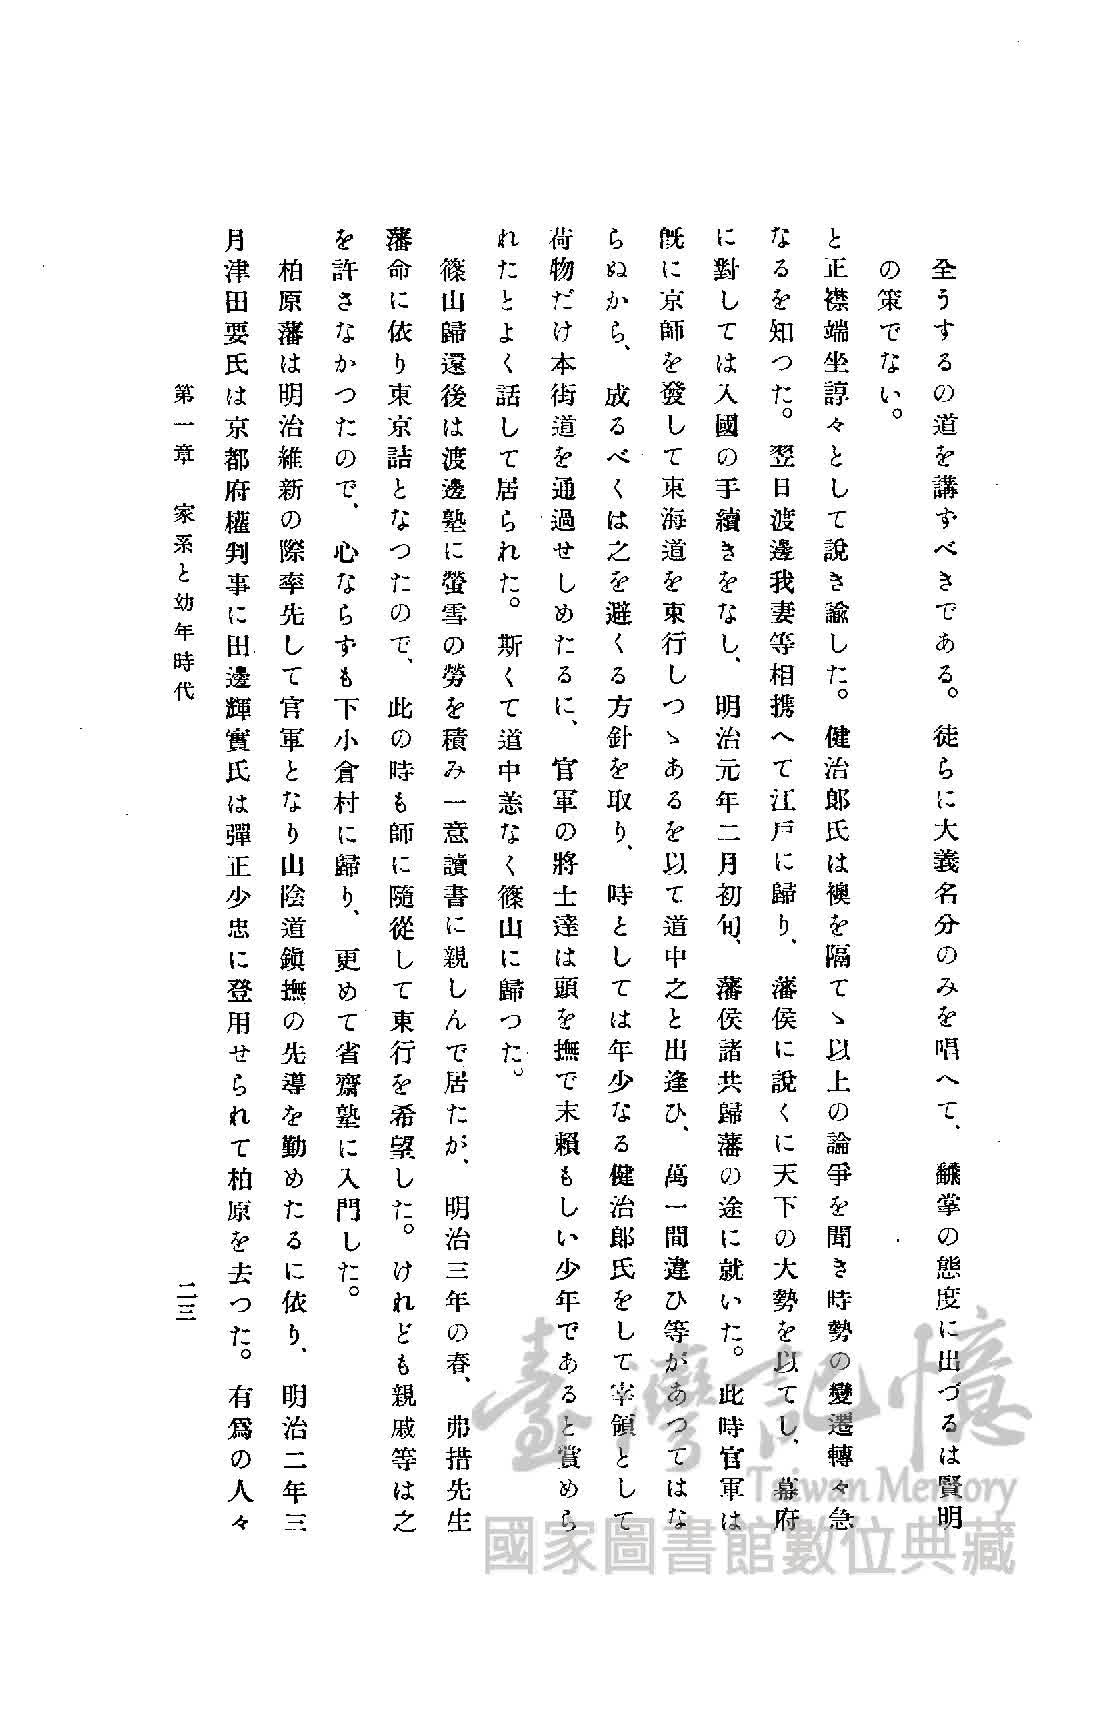 全うするの道を講ずべきである。徒らに大義名分のみを唱へて、鰥掌の態度に出づるは賢明
の策でない。
と正襟端坐諄々として說き諭した。健治郎氏は襖を隔てゝ以上の論爭を聞き時勢の變遷轉々急
なるを知つた。翌日渡邊我妻等相携へて江戶に歸り、藩侯に說くに天下の大勢を以てし、幕府
に對しては入國の手續きをなし、明治元年二月初旬、藩侯諸共歸藩の途に就いた。此時官軍は
旣に京師を發して東海道を東行しつゝあるを以て道中之と出逢ひ、萬一間違ひ等があつてはな
らぬから、成るべくは之を避くる方針を取り、時としては年少なる健治郎氏をして宰領として
荷物だけ本街道を通過せしめたるに、官軍の將士達は頭を撫で末賴もしい少年であると賞めら
れたとよく話して居られた。斯くて道中恙なく篠山に歸つた。
篠山歸還後は渡邊塾に螢雪の勞を積み一意讀書に親しんで居たが、明治三年の春、弗措先生
藩命に依り東京詰となつたので、此の時も師に隨從して東行を希望した。けれども親戚等は之
を許さなかつたので、心ならずも下小倉村に歸り、更めて省齋塾に入門した。
柏原藩は明治維新の際率先して官軍となり山陰道鎭撫の先導を勤めたるに依り、明治二年三
月津田要氏は京都府權判事に田邊輝實氏は彈正少忠に登用せられて柏原を去つた。有爲の人々
第一章 家系と幼年時代
二三
臺灣記憶
Taiwan Memory
國家圖書館數位典藏